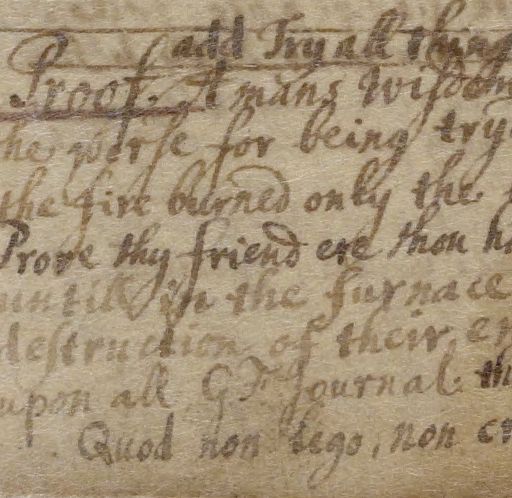 add Try all thing
Proof. A mans Wisdom
he worse for being try
the fire burned only the
Prove thy friend ere thou h
untill in the furnace
destruction of their en
upon all G.F. Journal. th
Quod non lego, non cr